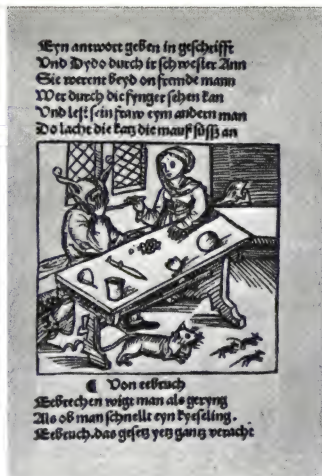 Eyn antwort geben in geschrifft
Vnd Dydo durch ir schwester Ann
Sie werent beyd on frembde mann
Wer durch die fynger sehen kan
Vnd lest sein fraw eym andern man
Do lacht die katz die mauß süß an
Von eebruch
Eebrechen wigt man als geryng
Als ob man schnellt eyn kyeseling.
Eebruch, das gesetz yetz gantz veracht